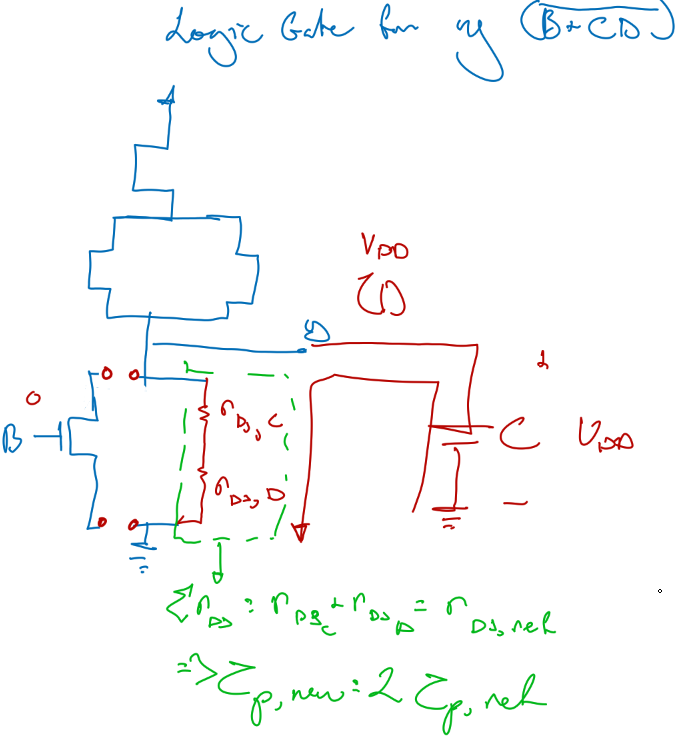 Logic Gate for y (B+CD)
VDD
0
B
rDS, C
rDS, D
C VDD
Σ rDS = rDSC + rDSD = rDS, net
=> τp, new = 2 τp, net